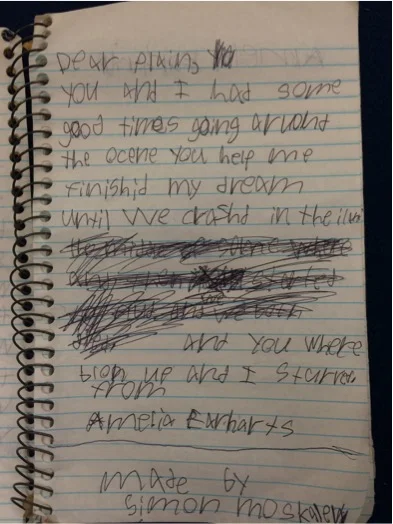 Dear plain,
you and I had some
good times going around
the ocene you help me
finishid my dream
until we crashd in the
and you where
blown up and I starved
from
Amelia Earharts
made by
simon